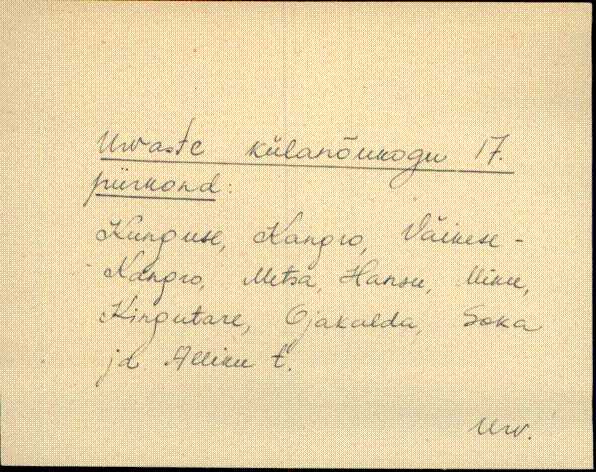 Urvaste külanõukogu 17.
piirkond:
Kunguse, Kangro, Väikese-
Kangro, Metsa, Hansu, Miku,
Kingutare, Ojakalda, Soka
ja Alliku t.
Urv.